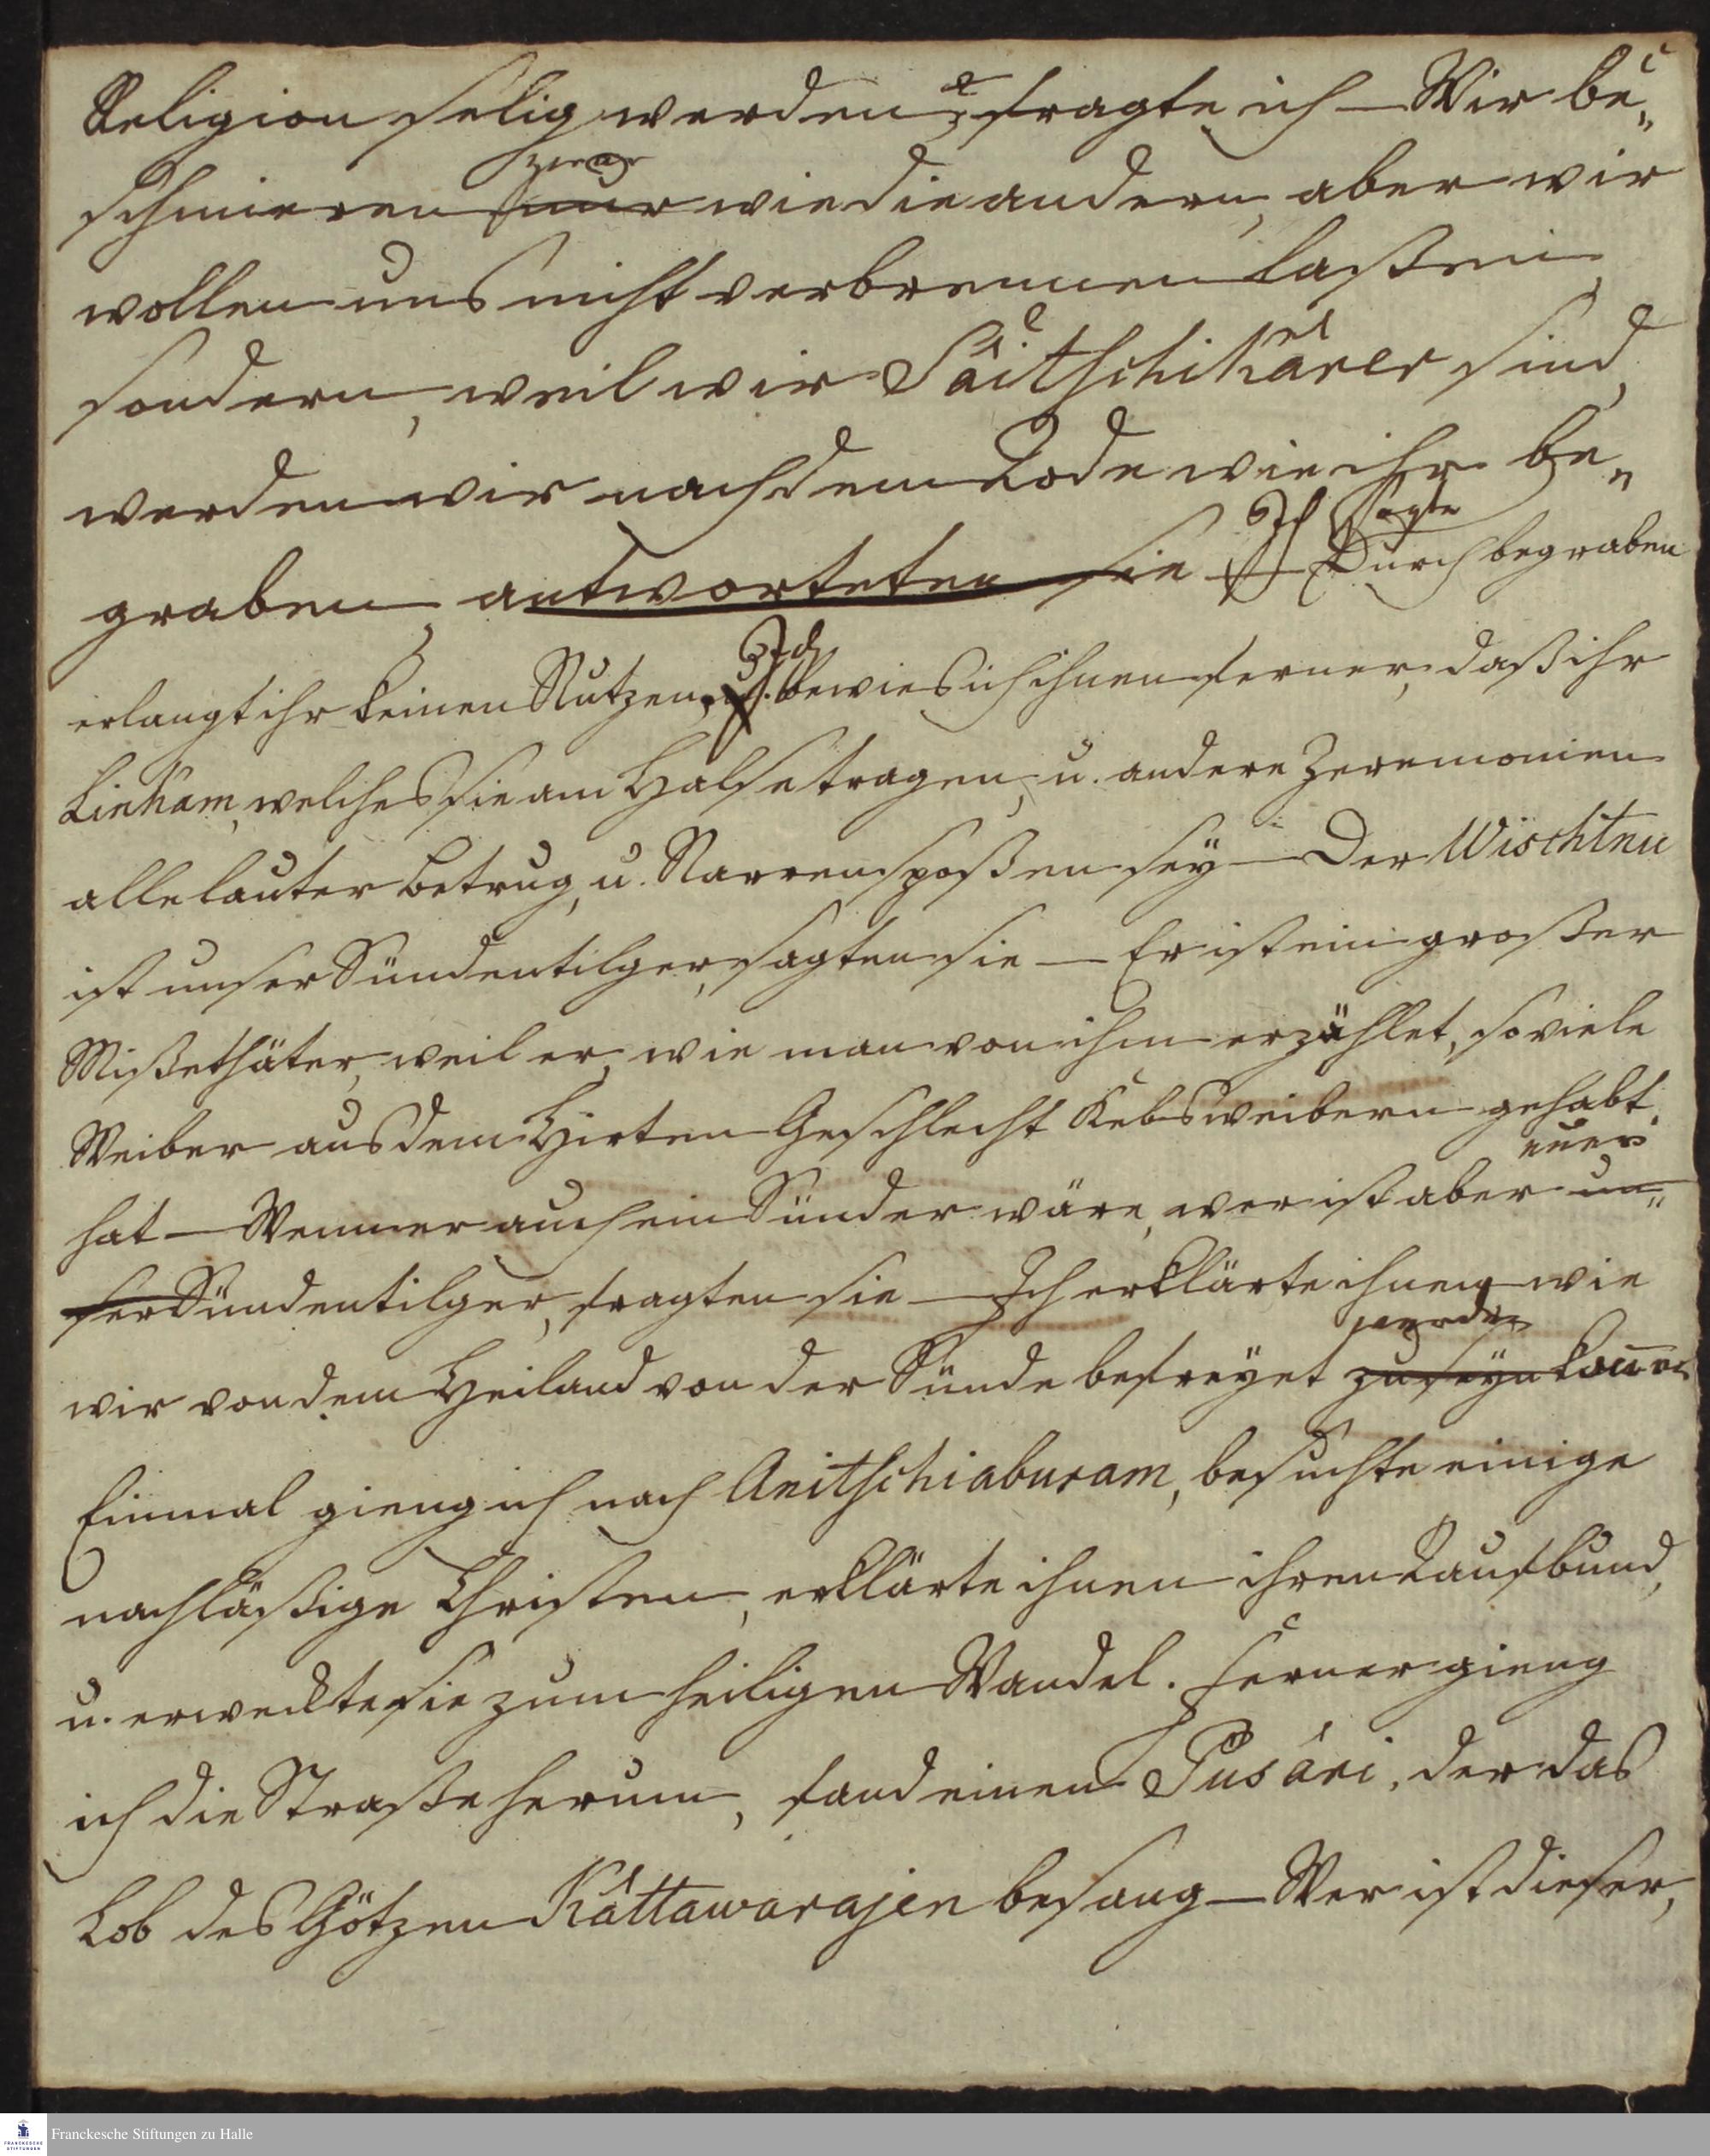 Religion selig werden? fragte ich — Wir be„
zwar
schmieren nur wie die andern, aber wir
wollen uns nicht verbrennen laßen,
sondern, weil wir Sáitschikárer sind,
werden wir nach dem Tode wie ihr be„
Ich sagte
graben, antworteten sie — Durch begraben
Ich
erlangt ihr keinen Nutzen, bewies ich ihnen ferner, daß ihr
Linkam, welches sie am Halse tragen, u. andere Zeremonien
alle lauter Betrug, u. Narrenspoßen sey — Der Wischtnu
ist unser Sündentilger, sagten sie — Er ist ein großer
Mißethäter, weil er, wie man von ihm erzählet, so viele
Weiber aus dem Hirten Geschlecht Kebsweibern gehabt
euer
hat — Wenn er auch ein Sünder wäre, wer ist aber un„
ser Sündentilger, fragten sie — Ich erklärte ihnen wie
werden
wir von dem Heiland von der Sünde befreyet zu seyn können
Einmal gieng ich nach Anitschiaburam, besuchte einige
nachläßige Christen, erklärte ihnen ihren Taufbund,
u. erweckte sie zum heiligen Wandel. Ferner gieng
ich die Straße herum, fand einen Púsári, der das
Lob des Götzen Káttawarajen besang — Wer ist dieser,
Franckesche Stiftungen zu Halle
FRANCKESCHE
STIFTUNGEN